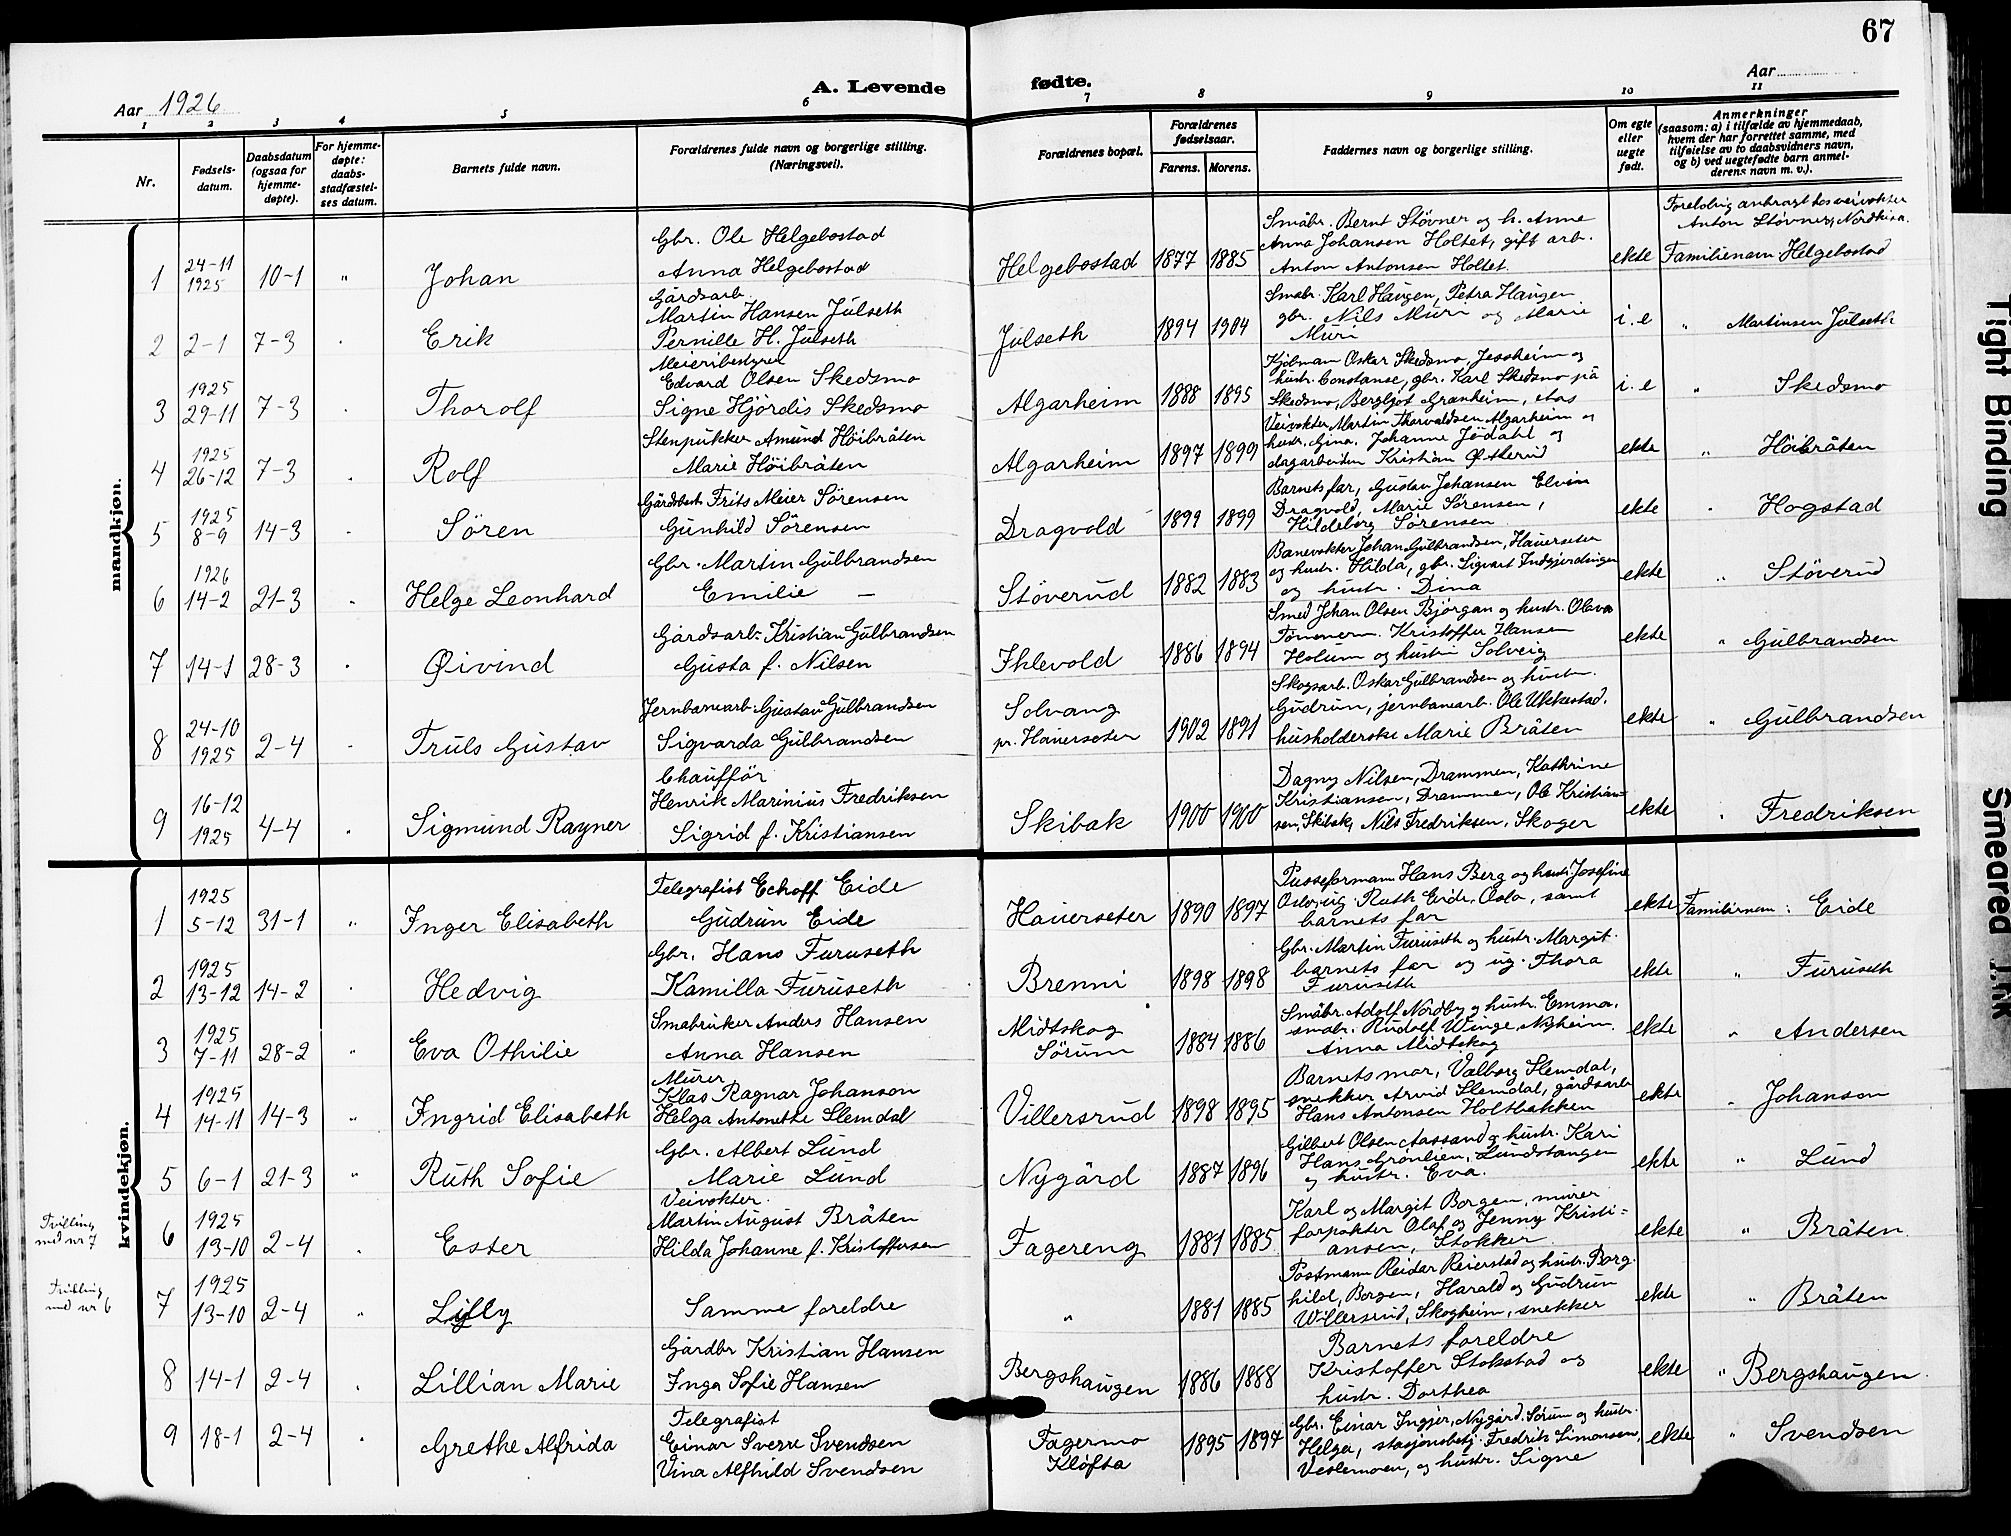 67
Aar 1926
A. Levende fødte.
Aar
1 2 3 4 5 6 7 8 9 10 11
Nr.
Fødsels-
datum.
Daabsdatum
(ogsaa for
hjemme-
døpte).
For hjemme-
døpte:
daabs-
stadfæstel-
ses datum.
Barnets fulde navn.
Forældrenes fulde navn og borgerlige stilling.
(Næringsvei).
Forældrenes bopæl.
Forældrenes
fødselsaar.
Farens. Morens.
Faddernes navn og borgerlige stilling.
Om egte
eller
uegte
født.
Anmerkninger
(saasom: a) i tilfælde av hjemmedaab,
hvem der har forrettet samme, med
tilføielse av to daabsvidners navn,
og b) ved uegtefødte barn anmel-
derens navn m. v.).
mandkjøn.
1
24-11
1925
10-1
"
Johan
Gbr. Ole Helgebostad
Anna Helgebostad
Helgebostad
1877 1885
Småbr. Bernt Støvner og h. Anne
Anna Johansen Holtet, gift arb.
Anton Antonsen Holtet.
ekte
Foreldrig anbragt hos veivokter
Anton Støvner, Nordkisa.
Familienavn Helgebostad
2
2-1
7-3
Erik
Gårdsarb.
Martin Hansen Julseth
Pernille H. Julseth
Julseth
1894 1904
Småbr. Karl Haugen, Petra Haugen
gbr. Nils Muri og Marie
Muri
i.e
" Martinsen Julseth
3
1925
29-11
7-3
Thorolf
Meieribestyrer
Edvard Olsen Skedsmo
Signe Hjördis Skedsmo
Algarheim
1888 1895
Kjøbman Oskar Skedsmo, Jessheim og
hustr. Constanse, gbr. Karl Skedsmo på
Skedsmo, Bergljot Granheim,
i.e
" Skedsmo
4
1925
26-12
7-3
Rolf
Stenpukker Amund Höibråten
Marie Höibråten
Algarheim
1897 1899
Veivokter Martin Thorvaldsen Algarheim og
hustr. Gina. Johanne Jödahl og
dagarbeider Kristian Østerud
ekte
" Höibråten
5
1925
8-9
14-3
Sören
Gårdbest. Frits Meier Sörensen
Gunhild Sörensen
Dragvold
1899 1899
Barnets far, Gustav Johansen Elvin
Dragvold, Marie Sörensen,
Hildeborg Sörensen
ekte
" Hogstad
6
1926
14-2
21-3
Helge Leonhard
Gbr. Martin Gulbrandsen
Emilie —
Støverud
1882 1883
Banevokter Johan Gulbrandsen, Hauerseter
og hustr. Hilda, gbr. Sigvart Indgjerdingen
og hustr. Dina
ekte
" Støverud
7
14-1
28-3
Øivind
Gårdsarb. Kristian Gulbrandsen
Gusta f. Nilsen
Ihlevold
1886 1894
Smed Johan Olsen Bjørgan og hustr. Olava
Kristoffer Hansen
Holum og hustru Solveig
ekte
" Gulbrandsen
8
24-10
1925
2-4
Truls Gustav
Jernbanearb. Gustav Gulbrandsen
Sigvarda Gulbrandsen
Solvang
pr. Hauerseter
1902 1891
Skogsarb. Oskar Gulbrandsen og hustr.
Gudrun, jernbanearb. Ole Ukkestad,
husholderske Marie Bråten
ekte
" Gulbrandsen
9
16-12
1925
4-4
Sigmund Ragner
Chauffør
Henrik Marinius Fredriksen
Sigrid f. Kristiansen
Skibak
1900 1900
Dagny Nilsen, Drammen, Kathrine
Kristiansen, Drammen, Ole Kristian-
sen, Skibak, Nils Fredriksen, Skoger
ekte
" Fredriksen
kvindekjøn.
1
1925
5-12
31-1
"
Inger Elisabeth
Telegrafist Echoff Eide
Gudrun Eide
Hauerseter
1890 1897
Pusseformann Hans Berg og hustr. Josefine
Oslo, ug. Ruth Eide, Oslo, samt
barnets far
ekte
Familienavn: Eide
2
1925
13-12
14-2
Hedvig
Gbr. Hans Furuseth
Kamilla Furuseth
Brenni
1898 1898
Gbr. Martin Furuseth og hustr. Margit.
barnets far og ug. Thora
Furuseth
ekte
" Furuseth
3
1925
7-11
28-2
"
Eva Othilie
Småbruker Anders Hansen
Anna Hansen
Midtskog
Sørum
1884 1886
Småbr. Adolf Nordby og hustr. Emma,
småbr. Rudolf Winge, Nyheim.
Anna Midtskog
ekte
" Andersen
4
1925
14-11
14-3
"
Ingrid Elisabeth
Murer
Klas Ragnar Johanson
Helga Antonette Slemdal
Villersrud
1898 1895
Barnets mor, Valborg Slemdal,
snekker Arvid Slemdal, gårdsarb.
Hans Antonsen Holtbakken
ekte
" Johanson
5
6-1
21-3
"
Ruth Sofie
Gbr. Albert Lund
Marie Lund
Nygård
1887 1896
Gilbert Olsen Aassand og hustr. Kari
Hans Grönlien, Lundstangen
og hustr. Eva.
ekte
" Lund
Tvilling
med nr 7
6
1925
13-10
2-4
Ester
Veivokter.
Martin August Bråten
Hilda Johanne f. Kristoffersen
Fagereng
1881 1885
Karl og Margit Borgen, murer
forpakter Olaf og Jenny Kristi=
ansen, Stokker
ekte
" Bråten
Tvilling
med nr 6
7
1925
13-10
2-4
"
Lilly
Samme foreldre
"
1881 1885
Postmann Reidar Reierstad og hustr. Borg-
hild, Borgen, Harald og Gudrun
Willersrud, Skogheim, snekker
ekte
" Bråten
8
14-1
2-4
Lillian Marie
Gårdbr Kristian Hansen
Inga Sofie Hansen
Bergshaugen
1886 1888
Barnets foreldre
Kristoffer Stokstad og
hustr. Dorthea
ekte
" Bergshaugen.
9
18-1
2-4
Grethe Alfrida
Telegrafist
Einar Sverre Svendsen
Vina Alfhild Svendsen
Fagermo
Kløfta
1895 1897
Gbr. Einar Ingjer, Nygård. Sørum og hustr.
Helga, stasjonsbetj. Fredrik Simonsen,
Veslemoen, og hustr. Signe
ekte
" Svendsen
Tight Binding
Smeared Ink